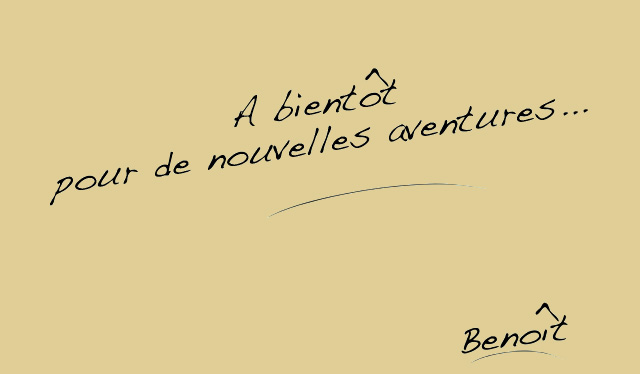 A bientôt
pour de nouvelles aventures...
Benoît